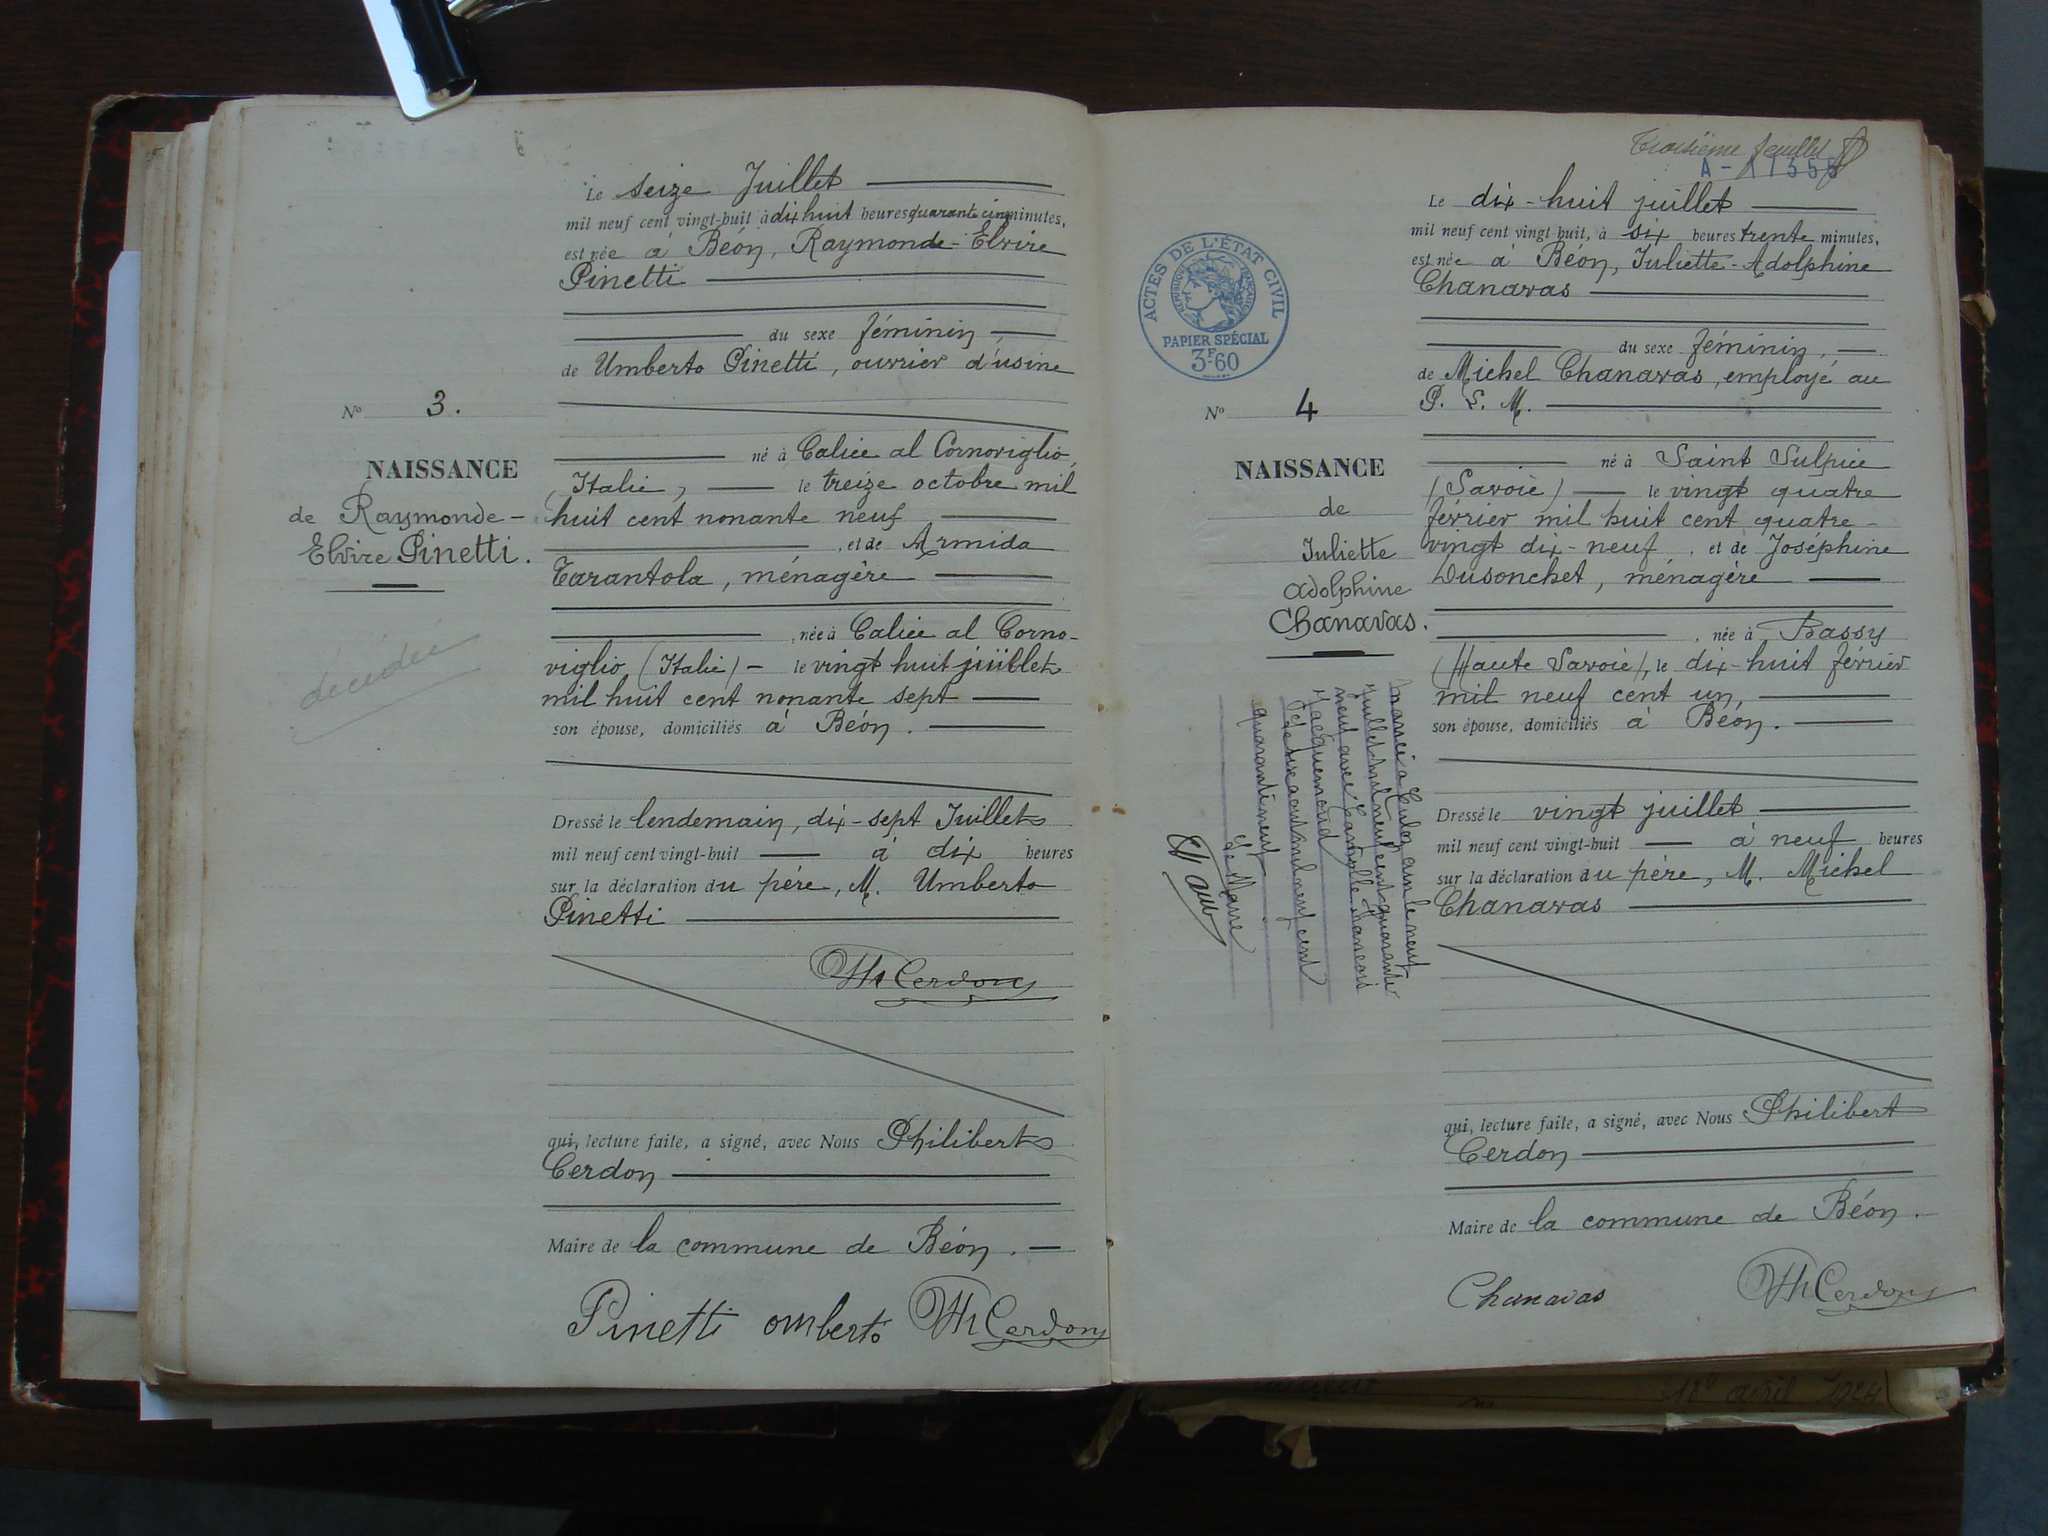 Le seize Juillet
mil neuf cent vingt-huit à dix huit heures quarante cinq minutes,
est née à Béon, Raymonde-Elvire
Pinetti
du sexe féminin,
de Umberto Pinetti, ouvrier d'usine
né à Calice al Cornoviglio,
(Italie), le treize octobre mil
huit cent nonante neuf
, et de Armida
Tarantola, ménagère
, née à Calice al Corno-
viglio (Italie) – le vingt huit juillet
mil huit cent nonante sept
son épouse, domiciliés à Béon.
Dressé le lendemain, dix-sept Juillet
mil neuf cent vingt-huit à dix heures
sur la déclaration du père, M. Umberto
Pinetti
Ph Cerdon
qui, lecture faite, a signé, avec Nous Philibert
Cerdon
Maire de la commune de Béon.
Pinetti omberto Ph Cerdon
No 3.
NAISSANCE
de Raymonde-
Elvire Pinetti.
décédée
Troisième feuillet
A - 17355
ACTES DE L'ÉTAT CIVIL
RÉPUBLIQUE FRANÇAISE
PAPIER SPÉCIAL
3F60
No 4
NAISSANCE
de
Juliette
Adolphine
Chanavas.
Le dix-huit juillet
mil neuf cent vingt huit, à six heures trente minutes,
est née à Béon, Juliette-Adolphine
Chanavas
du sexe féminin,
de Michel Chanavas, employé au
P. L. M.
né à Saint Sulpice
(Savoie) le vingt quatre
février mil huit cent quatre-
vingt dix-neuf, et de Joséphine
Dusonchet, ménagère
, née à Bassy
(Haute Savoie), le dix-huit février
mil neuf cent un,
son épouse, domiciliés à Béon.
Dressé le vingt juillet
mil neuf cent vingt-huit à neuf heures
sur la déclaration du père, M. Michel
Chanavas
qui, lecture faite, a signé, avec Nous Philibert
Cerdon
Maire de la commune de Béon.
Chanavas Ph Cerdon
le neuf
juillet mil neuf cent quarante
neuf avec François
Jacquemoud
août mil neuf cent
quarante neuf
Le Maire
avril 1924